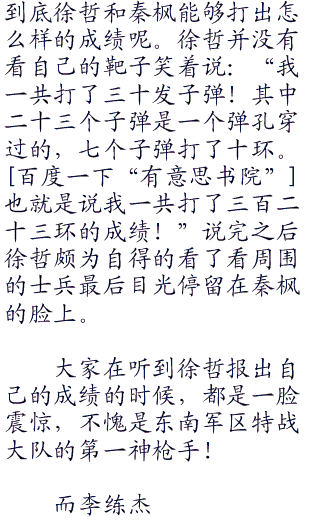 到底徐哲和秦枫能够打出怎
么样的成绩呢。徐哲并没有
看自己的靶子笑着说：“我
一共打了三十发子弹！其中
二十三个子弹是一个弹孔穿
过的，七个子弹打了十环。
[百度一下“有意思书院”]
也就是说我一共打了三百二
十三环的成绩！”说完之后
徐哲颇为自得的看了看周围
的士兵最后目光停留在秦枫
的脸上。
大家在听到徐哲报出自
己的成绩的时候，都是一脸
震惊，不愧是东南军区特战
大队的第一神枪手！
而李练杰